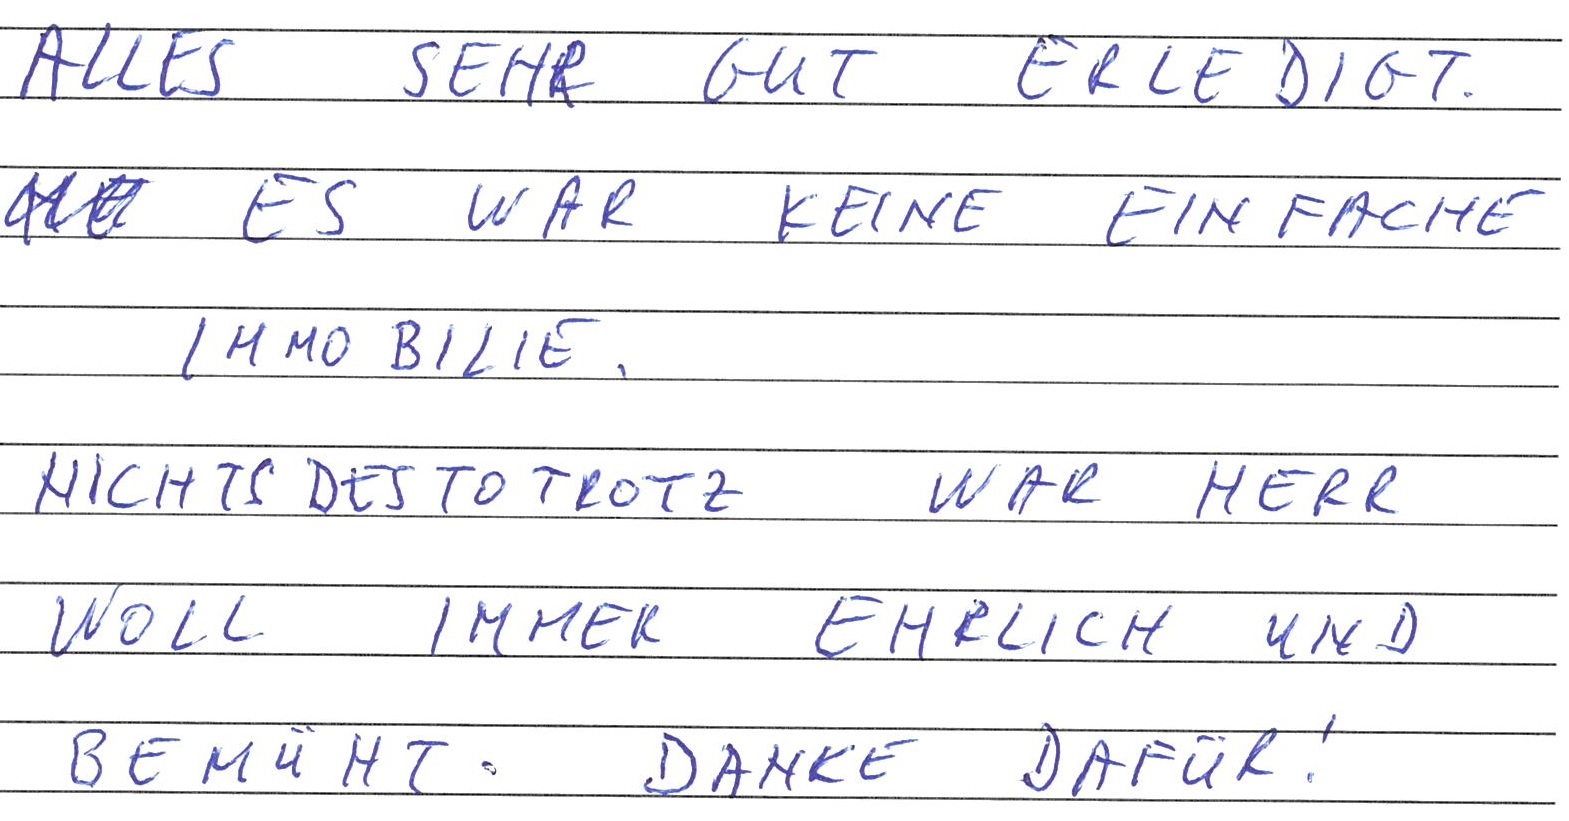 ALLES SEHR GUT ERLEDIGT.
ES WAR KEINE EINFACHE
IMMOBILIE.
NICHTSDESTOTROTZ WAR HERR
WOLL IMMER EHRLICH UND
BEMÜHT. DANKE DAFÜR!